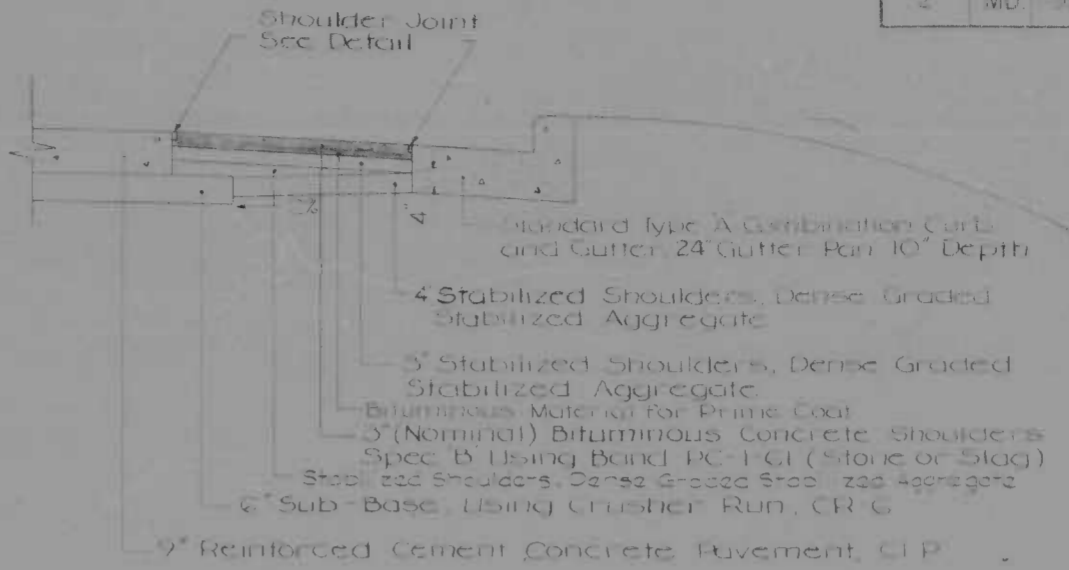 MD.
Shoulder Joint
See Detail
Standard Type A Combination Curb
and Gutter 24" Gutter Pan 10" Depth
4" Stabilized Shoulders, Dense Graded
Stabilized Aggregate
Stabilized Shoulders, Dense Graded
Stabilized Aggregate.
Bituminous Material for Prime Coat
3" (Nominal) Bituminous Concrete Shoulders
Spec 'B' Using Band (Stone or Slag)
Stabilized Shoulders, Dense Graded Stabilized Aggregate
6" Sub-Base, Using Crusher Run, CR-6
9" Reinforced Cement Concrete Pavement,